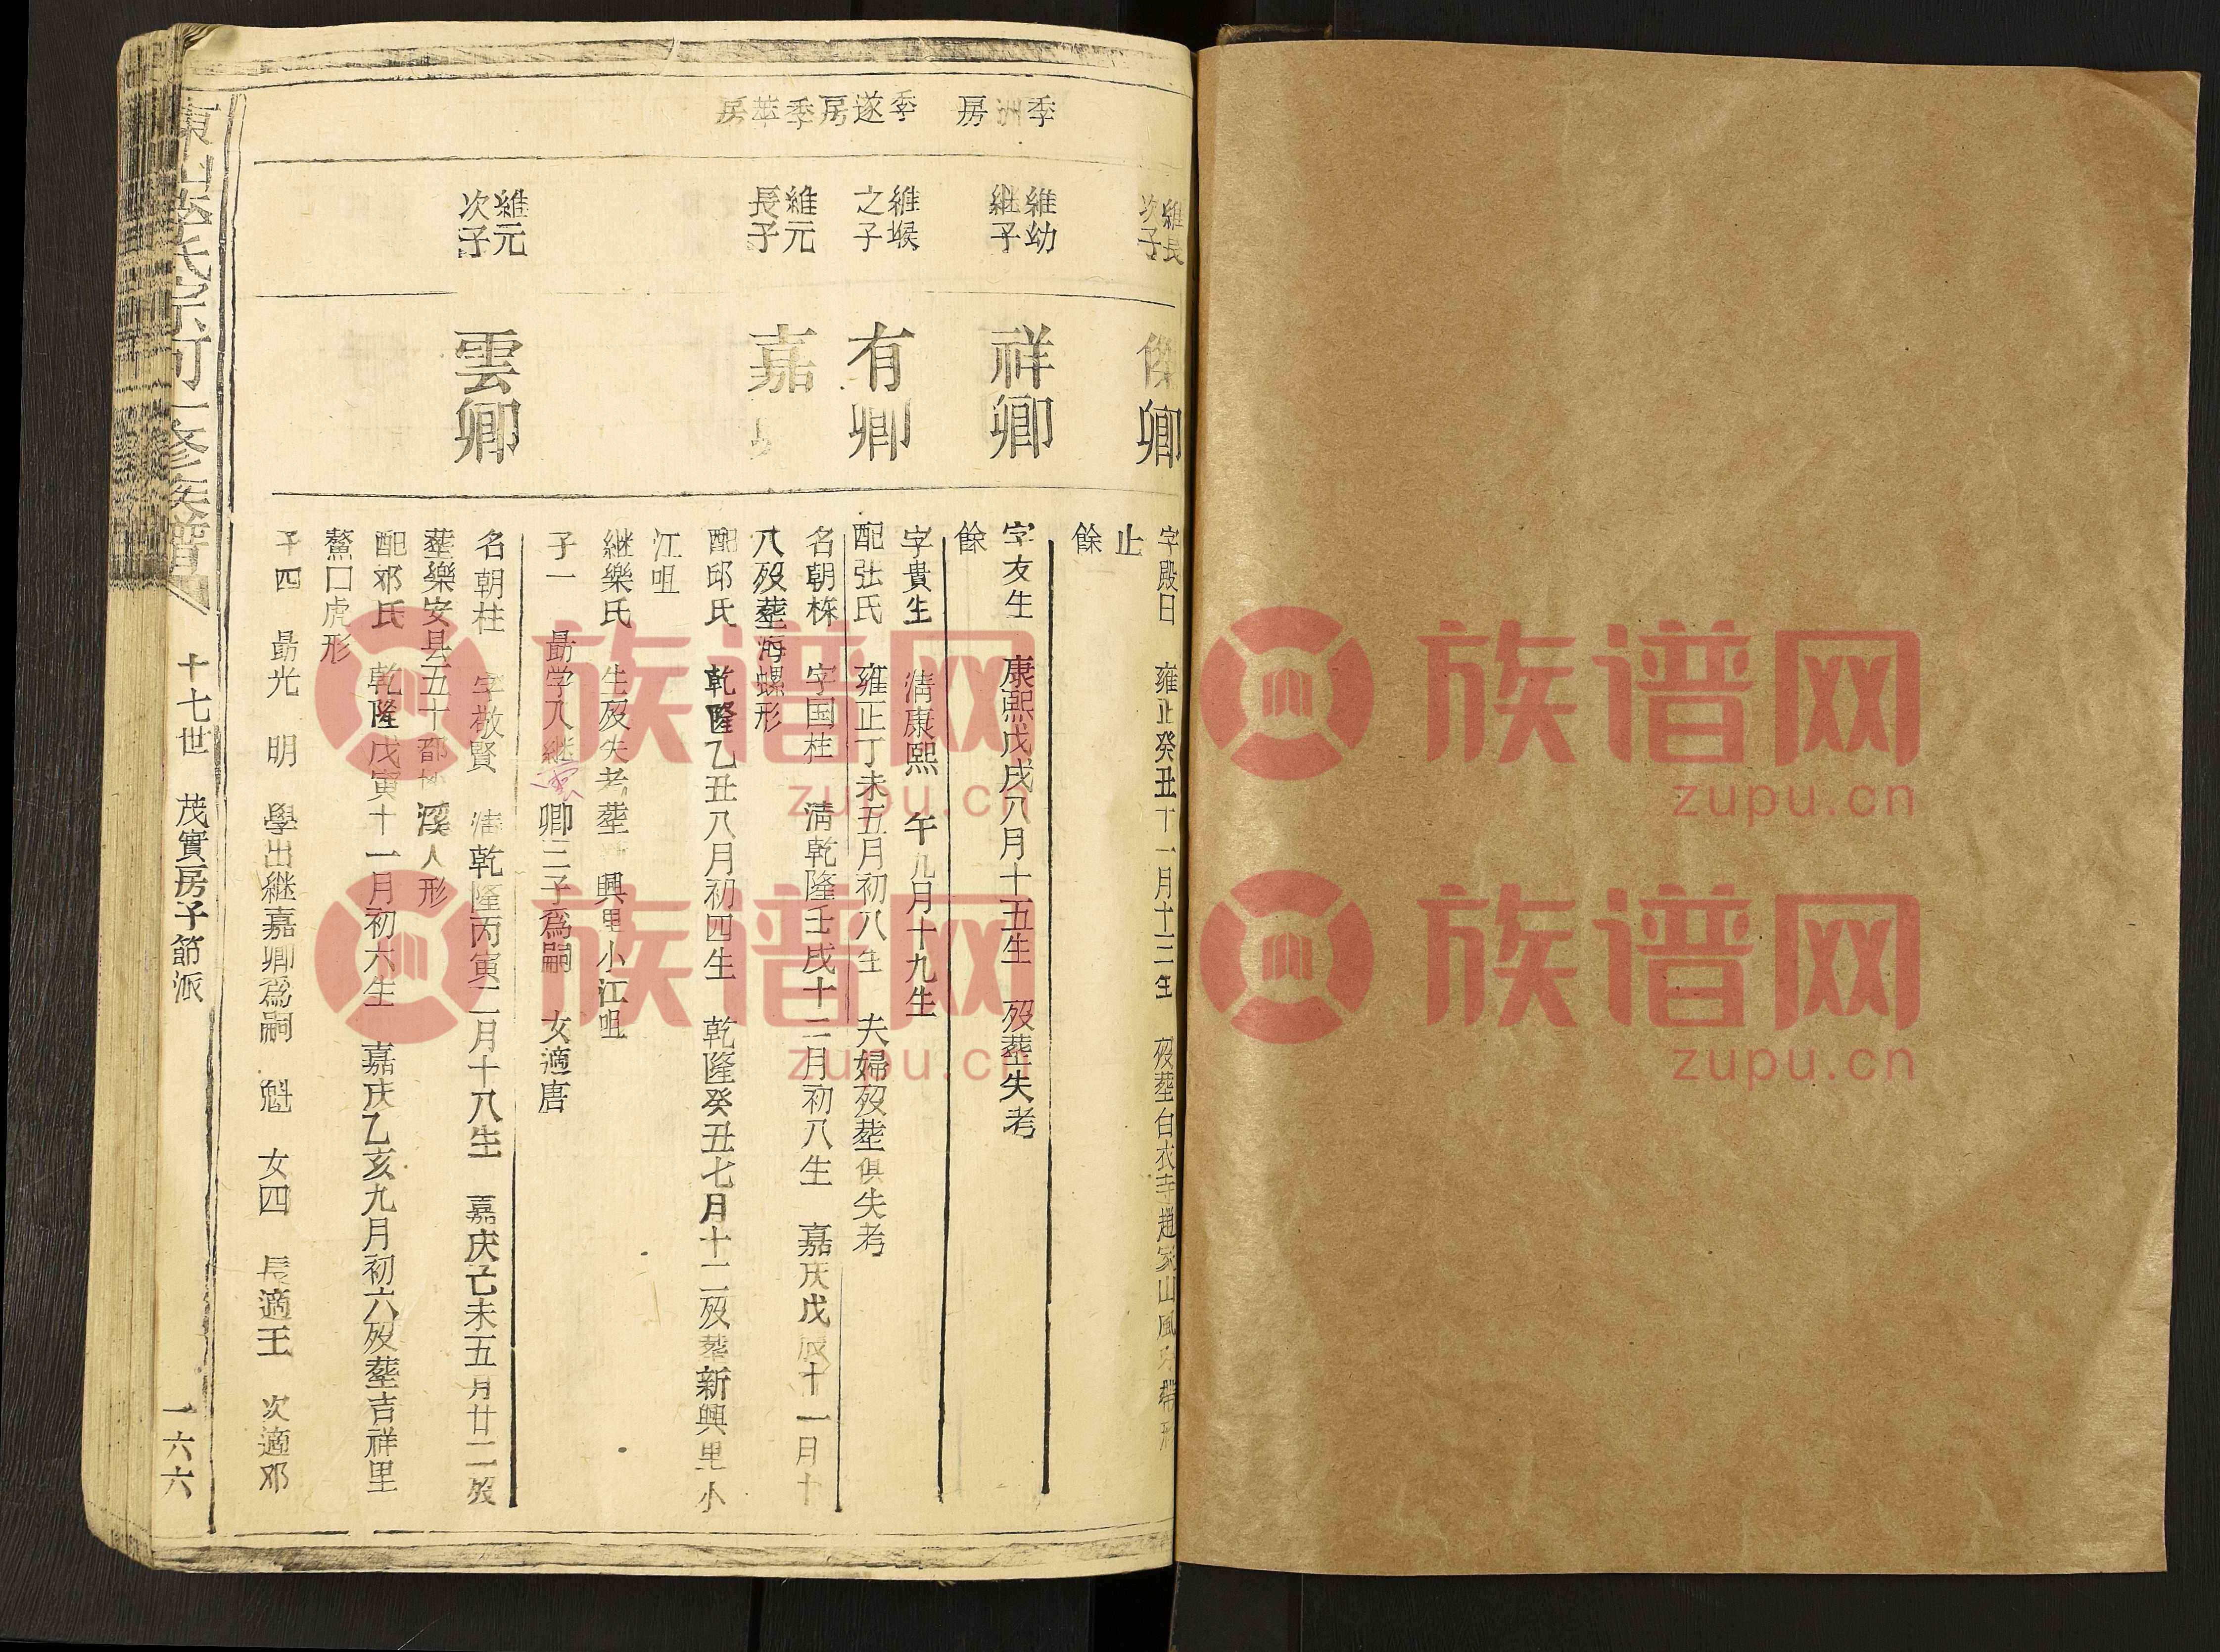 季洲房
季遂房
季莘房
維長次子
維幼継子
維堠之子
維元長子
維元次子
傑卿
祥卿
有卿
嘉
雲卿
字殿日 雍正癸丑十一月十二生 殁塟白衣寺趙家山風 帶形
止
餘
字友生 康熙戊戌八月十五生 殁塟失考
餘
字貴生 清康熙 午九月十九生
配张氏 雍正丁未五月初八生 夫婦殁塟俱失考
名朝株 字国柱 清乾隆壬戌十二月初八生 嘉庆戊辰十一月十
八殁塟海螺形
配邱氏 乾隆乙丑八月初四生 乾隆癸丑七月十二殁塟新興里小
江咀
継樂氏 生殁失考塟 興里小江咀
子一 勗学入継雲卿三子爲嗣 女適唐
名朝柱 字敬賢 清乾隆丙寅二月十八生 嘉庆己未五月廿二殁
塟樂安县五十都 溪人形
配邓氏 乾隆戊寅十一月初六生 嘉庆乙亥九月初六殁塟吉祥里
鰲口虎形
子四 勗光 明 學出継嘉卿爲嗣 魁 女四 長適王 次適邓
修族譜
十七世 茂實房子節派
一六六
族谱网
zupu.cn
族谱网
zupu.cn
族谱网
zupu.cn
族谱网
zupu.cn